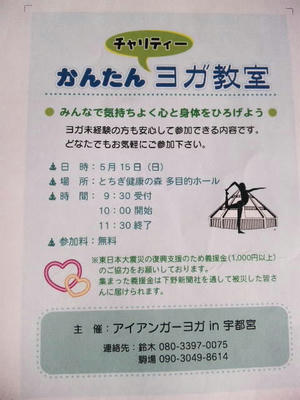 チャリティー
かんたん ヨガ教室
● みんなで気持ちよく心と身体をひろげよう ●
ヨガ未経験の方も安心して参加できる内容です。
どなたでもお気軽にご参加下さい。
日 時：5月15日（日）
場 所：とちぎ健康の森 多目的ホール
時 間： 9：30 受付
10：00 開始
11：30 終了
参加料：無料
※東日本大震災の復興支援のため義援金（1,000円以上）
のご協力をお願いしております。
集まった義援金は下野新聞社を通して被災した皆さ
んに届けられます。
主 催：アイアンガーヨガ in 宇都宮
連絡先：鈴木 080-3397-0075
駒場 090-3049-8614